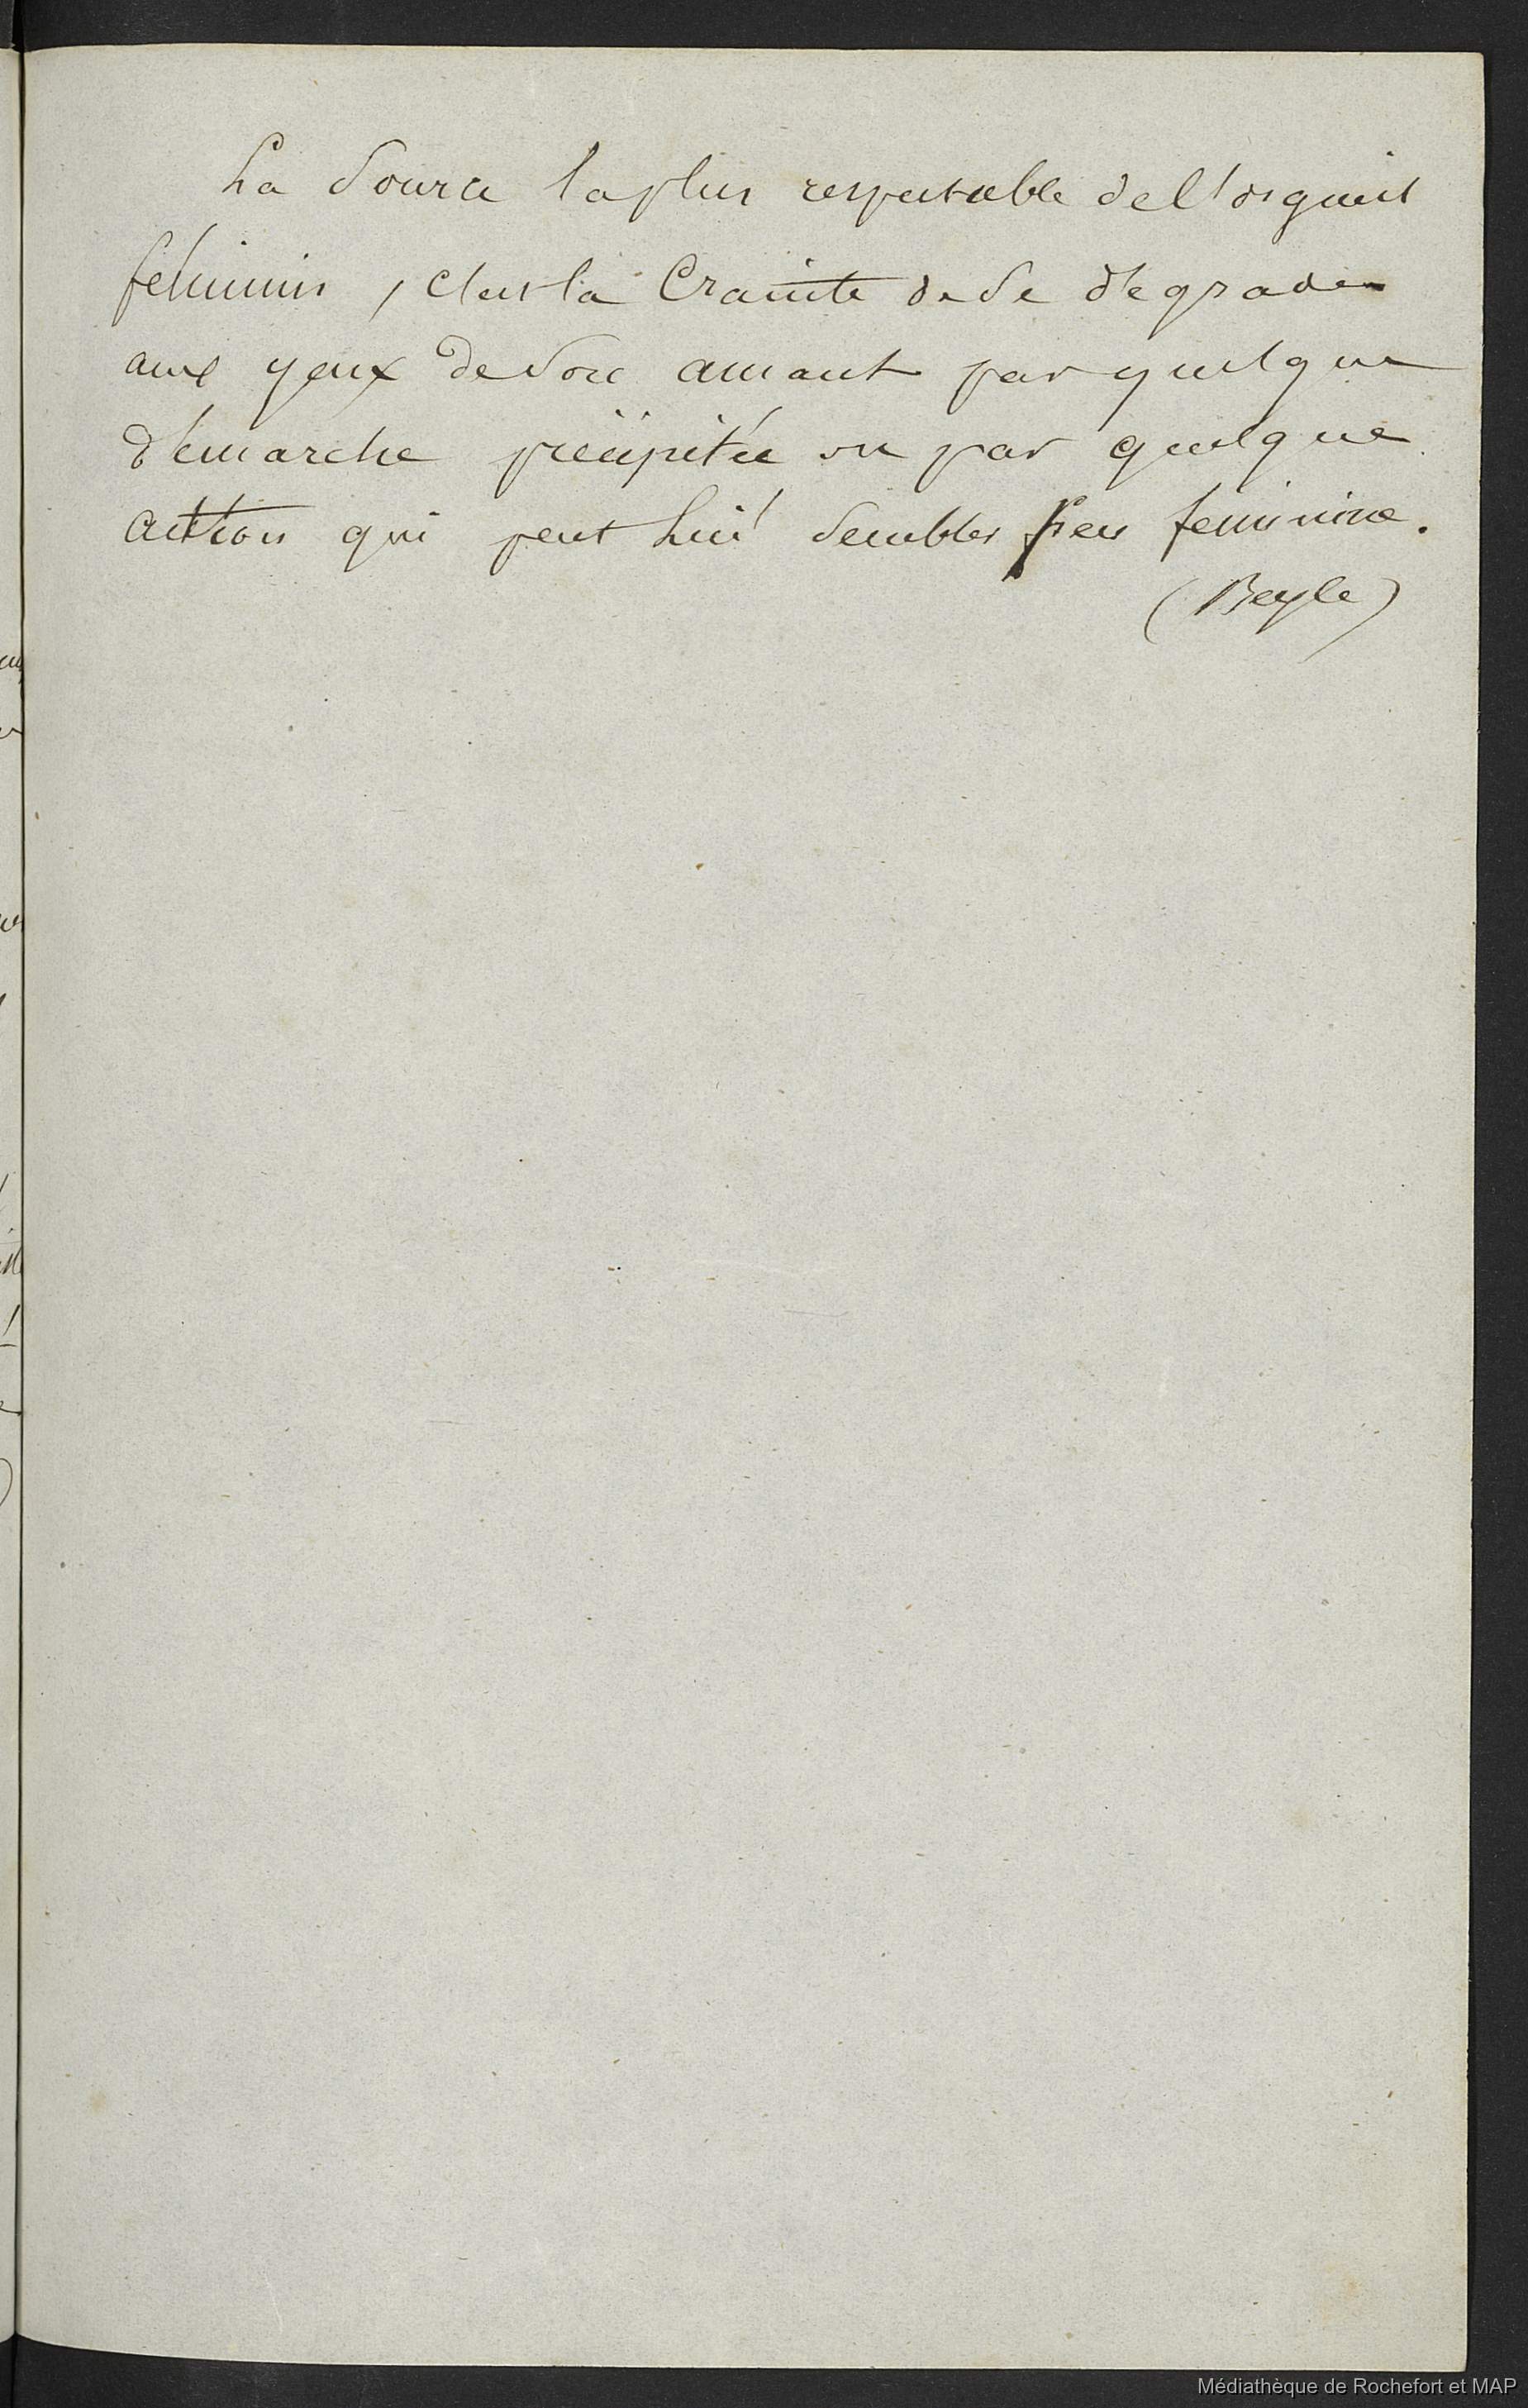 La source la plus respectable de l'orgueil
féminin, c'est la crainte de se dégrader
aux yeux de son amant par quelque
démarche précipitée ou par quelque
action qui peut lui sembler peu féminine.
(Beyle)
Médiathèque de Rochefort et MAP